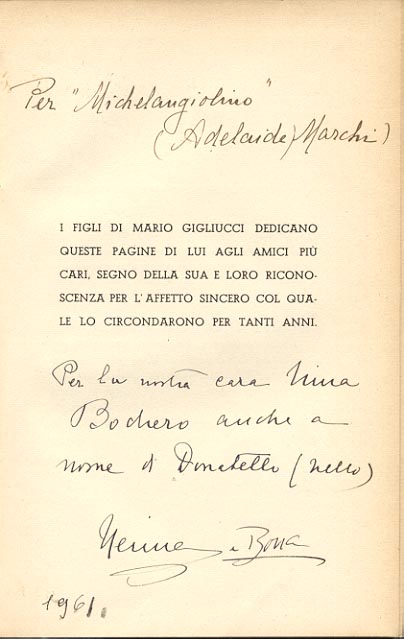 Per "Michelangiolino"
(Adelaide Marchi)
I FIGLI DI MARIO GIGLIUCCI DEDICANO
QUESTE PAGINE DI LUI AGLI AMICI PIÙ
CARI, SEGNO DELLA SUA E LORO RICONO-
SCENZA PER L'AFFETTO SINCERO COL QUA-
LE LO CIRCONDARONO PER TANTI ANNI.
Per la nostra cara Nina
Bochero anche a
nome di Donatello (Nello)
Nerina e Bona
1961.